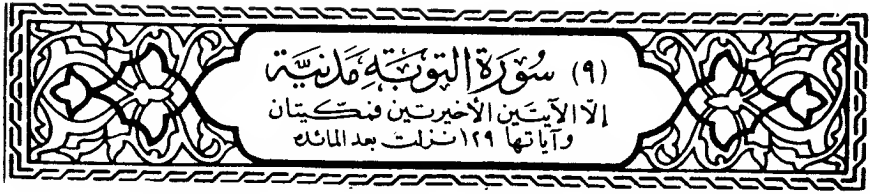 (٩) سُورَة التوبَةِ مَدَنيَّة
إلا الآيتَين الأخيرتين فمكيّتان
وآياتها ١٢٩ نزلت بعد المائده